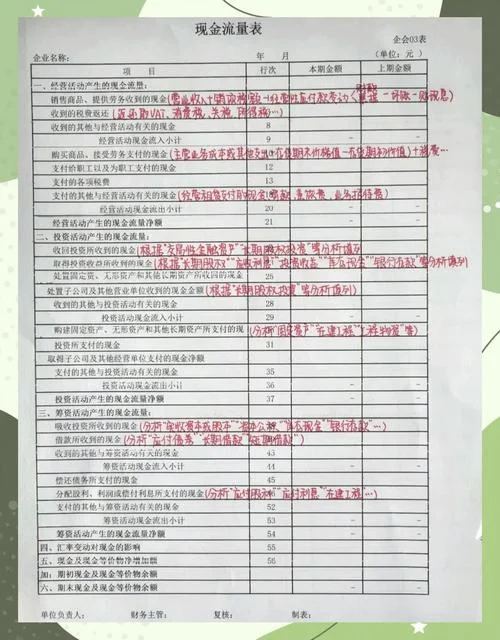 现金流量表
企会03表
企业名称： 年 月 （单位：元）
项 目 行次 本期金额 上期金额
一、经营活动产生的现金流量：
销售商品、提供劳务收到的现金(营业收入+销项税额
收到的税费返还(返还的VAT、消费税、关税、所得税…)
收到的其他与经营活动有关的现金 8
经营活动现金流入小计 9 － －
购买商品、接受劳务支付的现金(主营业务成本或其他支出+存货期末价值－存货期初价值)+税费…
支付给职工以及为职工支付的现金 12
支付的各项税费 13
支付的其他与经营活动有关的现金(经营租赁支付的现金、罚款、差旅费、业务招待费)
经营活动现金流出小计 20 － －
经营活动产生的现金流量净额 21 － －
二、投资活动产生的现金流量：
收回投资所收到的现金(根据"交易性金融资产""长期股权投资"等分析填列
取得投资收益所收到的现金(根据"长期股权""应收利息""投资收益""库存现金""银行存款"等分析填列
处置固定资产、无形资产和其他长期资产所收回的现金 25
处置子公司及其他营业单位收到的现金金额(根据"长期股权投资"等分析填列)
收到的其他与投资活动有关的现金 28
投资活动现金流入小计 29 － －
购建固定资产、无形资产和其他长期资产所支付的现(分析"固定资产""在建工程""工程物资"等)
投资所支付的现金 31
取得子公司及其他经营单位支付的现金净额
支付的其他与投资活动有关的现金 35
投资活动现金流出小计 36 － －
投资活动产生的现金流量净额 37 － －
三、筹资活动产生的现金流量：
吸收投资所收到的现金(分析"实收资本或股本""资本公积""库存现金""银行存款"…)
借款所收到的现金(分析"应付债券""长期借款""短期借款")
收到的其他与筹资活动有关的现金 43
筹资活动现金流入小计 44 － －
偿还债务所支付的现金 45
分配股利、利润或偿付利息所支付的现金(分析"应付股利""应付利息""在建工程"…)
支付的其他与筹资活动有关的现金 52
筹资活动现金流出小计 53 － －
筹资活动产生的现金流量净额 54 － －
四、汇率变动对现金的影响 55
五、现金及现金等价物净增加额 56 － －
加：期初现金及现金等价物余额
六、期末现金及现金等价物余额 － －
单位负责人： 财务主管： 复核： 制表：